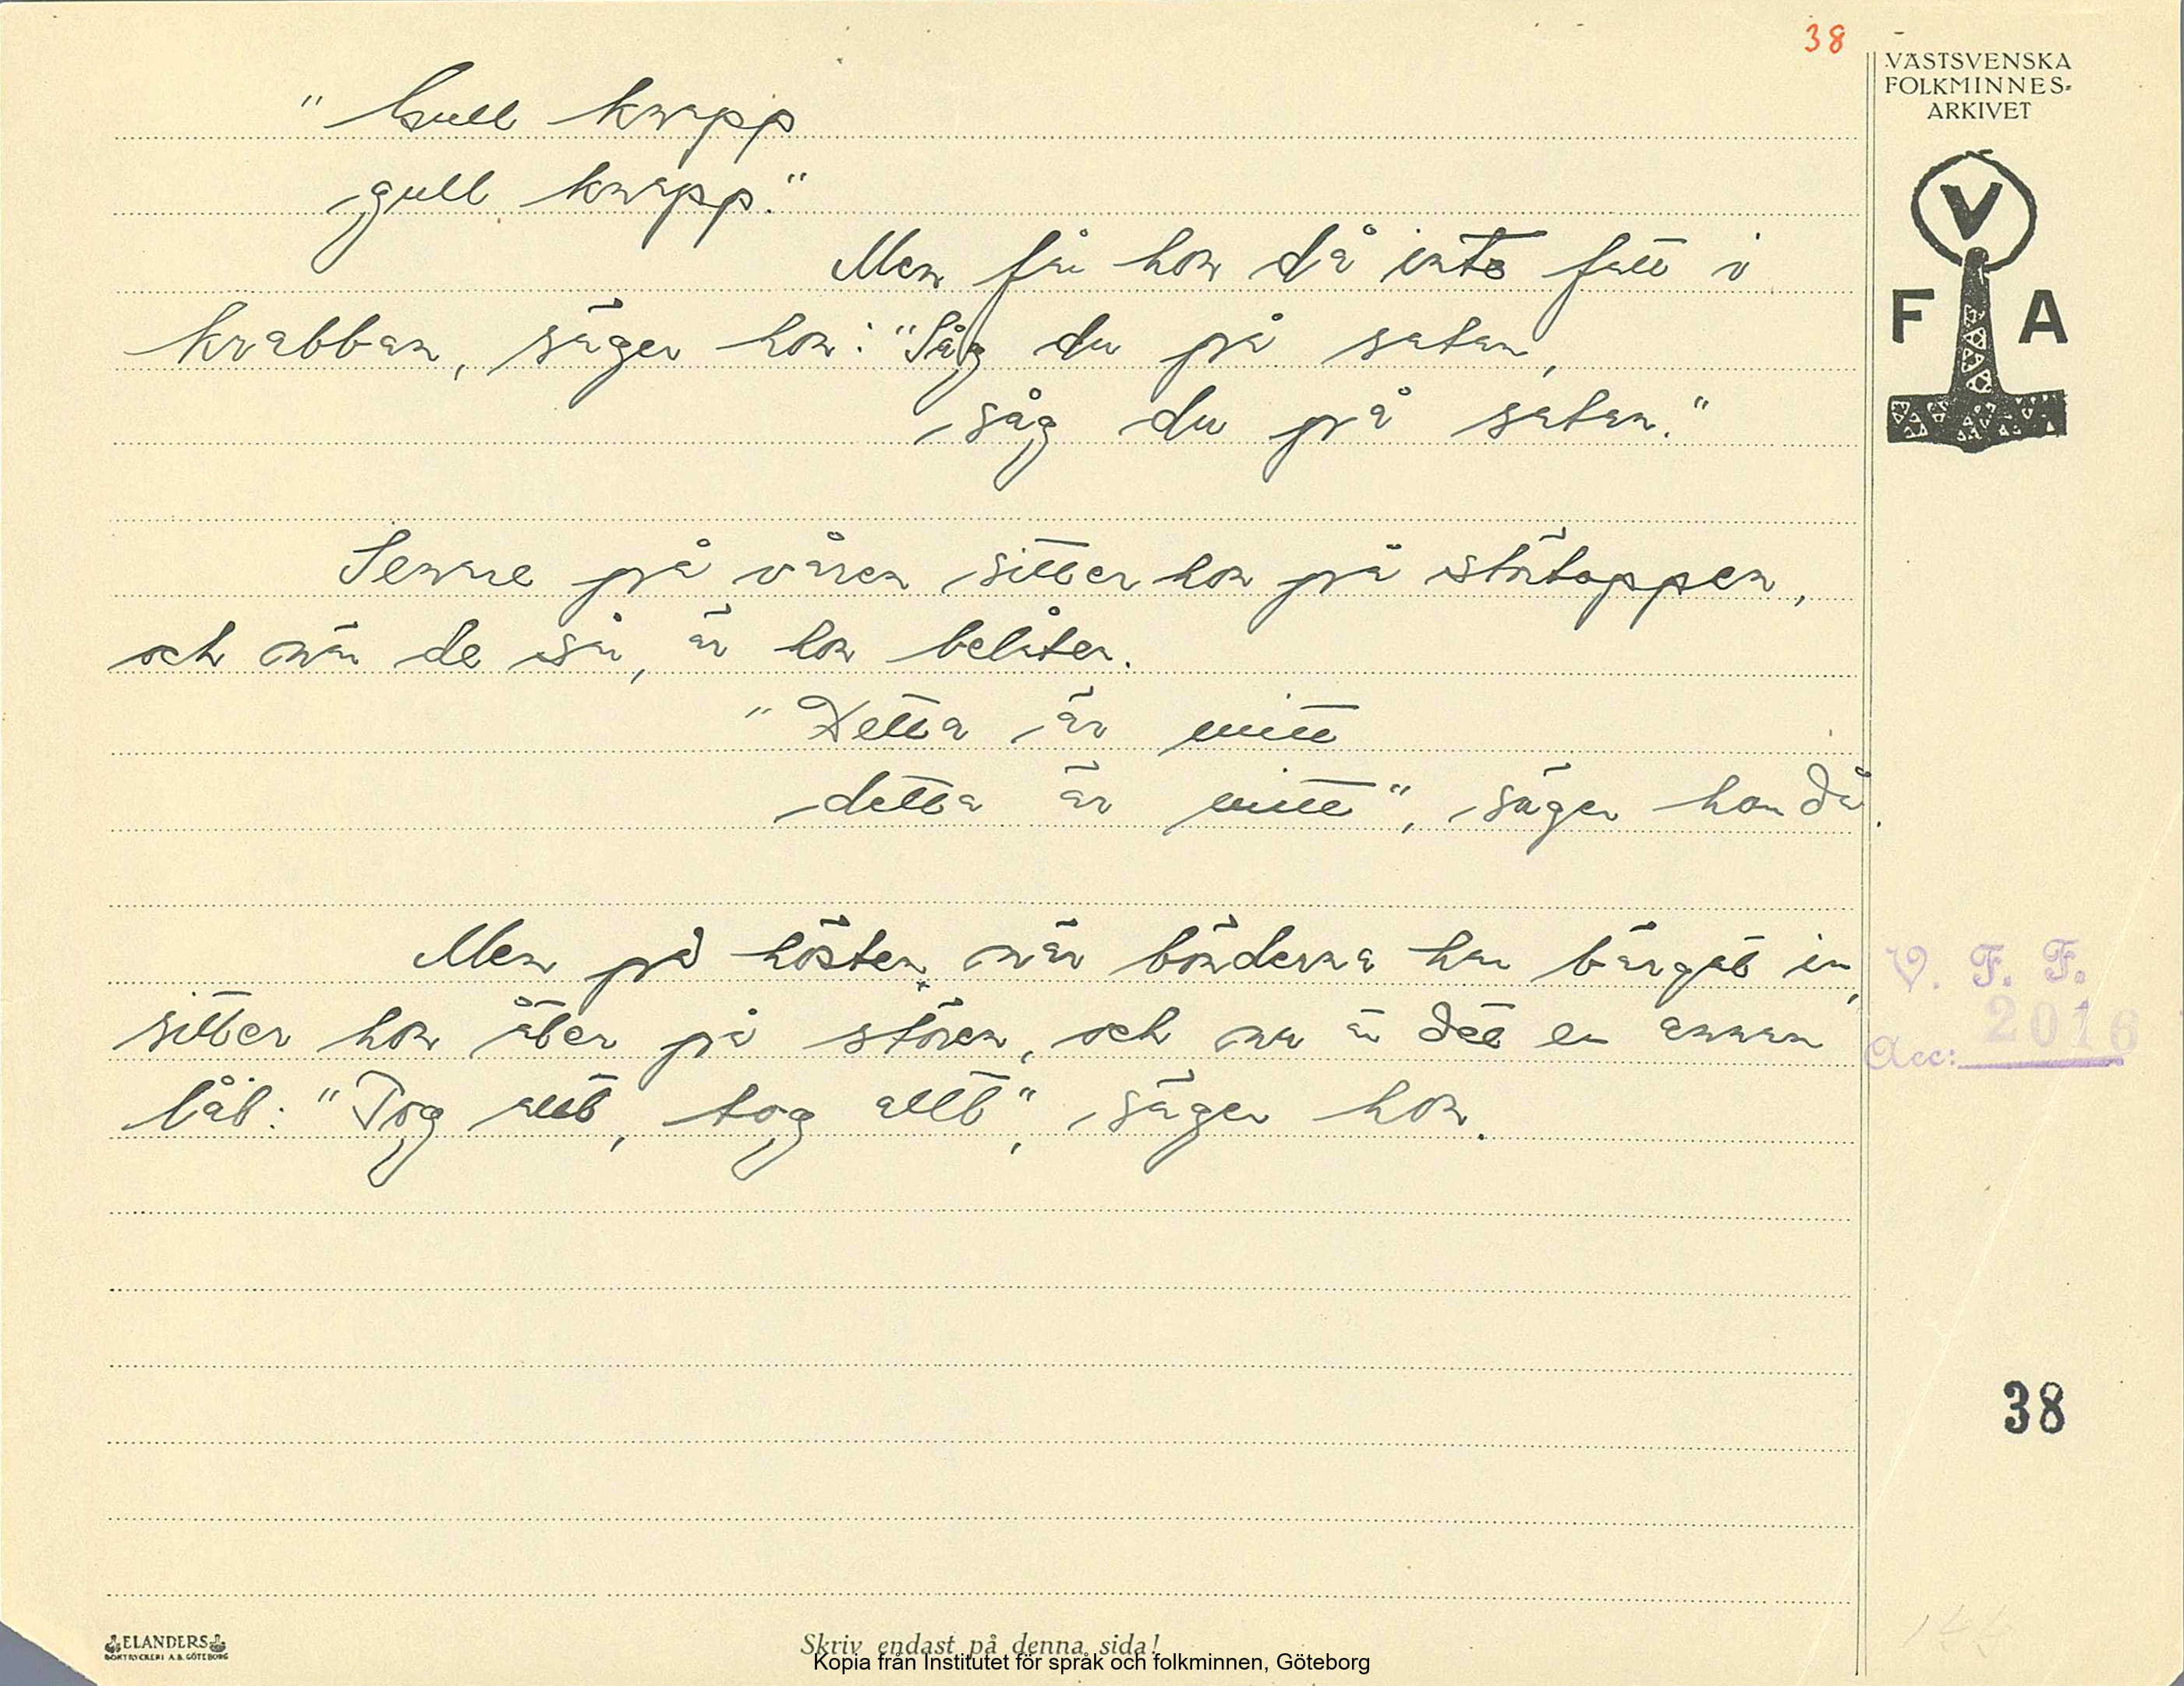 38
VÄSTSVENSKA
FOLKMINNES-
ARKIVET
V
F A
"Gull knapp
gull knapp."
Men får hon då inte fatt i
krabban, säger hon: "Såg du på satan,
såg du på satan."
Senare på våren sitter hon på störtoppen,
och när de sår, är hon belåten.
"Detta är mitt
detta är mitt", säger hon då.
Men på hösten, när bönderna har bärgat in,
sitter hon åter på stören, och nu är det en annan
låt: "Tog allt, tog allt", säger hon.
V. F. F.
Acc: 2016
38
ELANDERS
BOKTRYCKERI A.B. GÖTEBORG
Skriv endast på denna sida!
Kopia från Institutet för språk och folkminnen, Göteborg